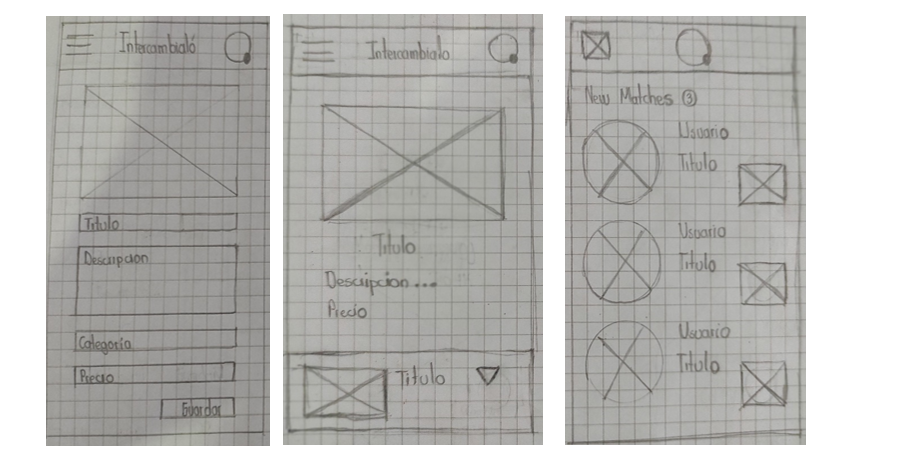 Intercambialó
Titulo
Descripcion
Categoria
Precio
Guardar
Intercambialo
Titulo
Descripcion...
Precio
Titulo
New Matches ③
Usuario
Titulo
Usuario
Titulo
Usuario
Titulo